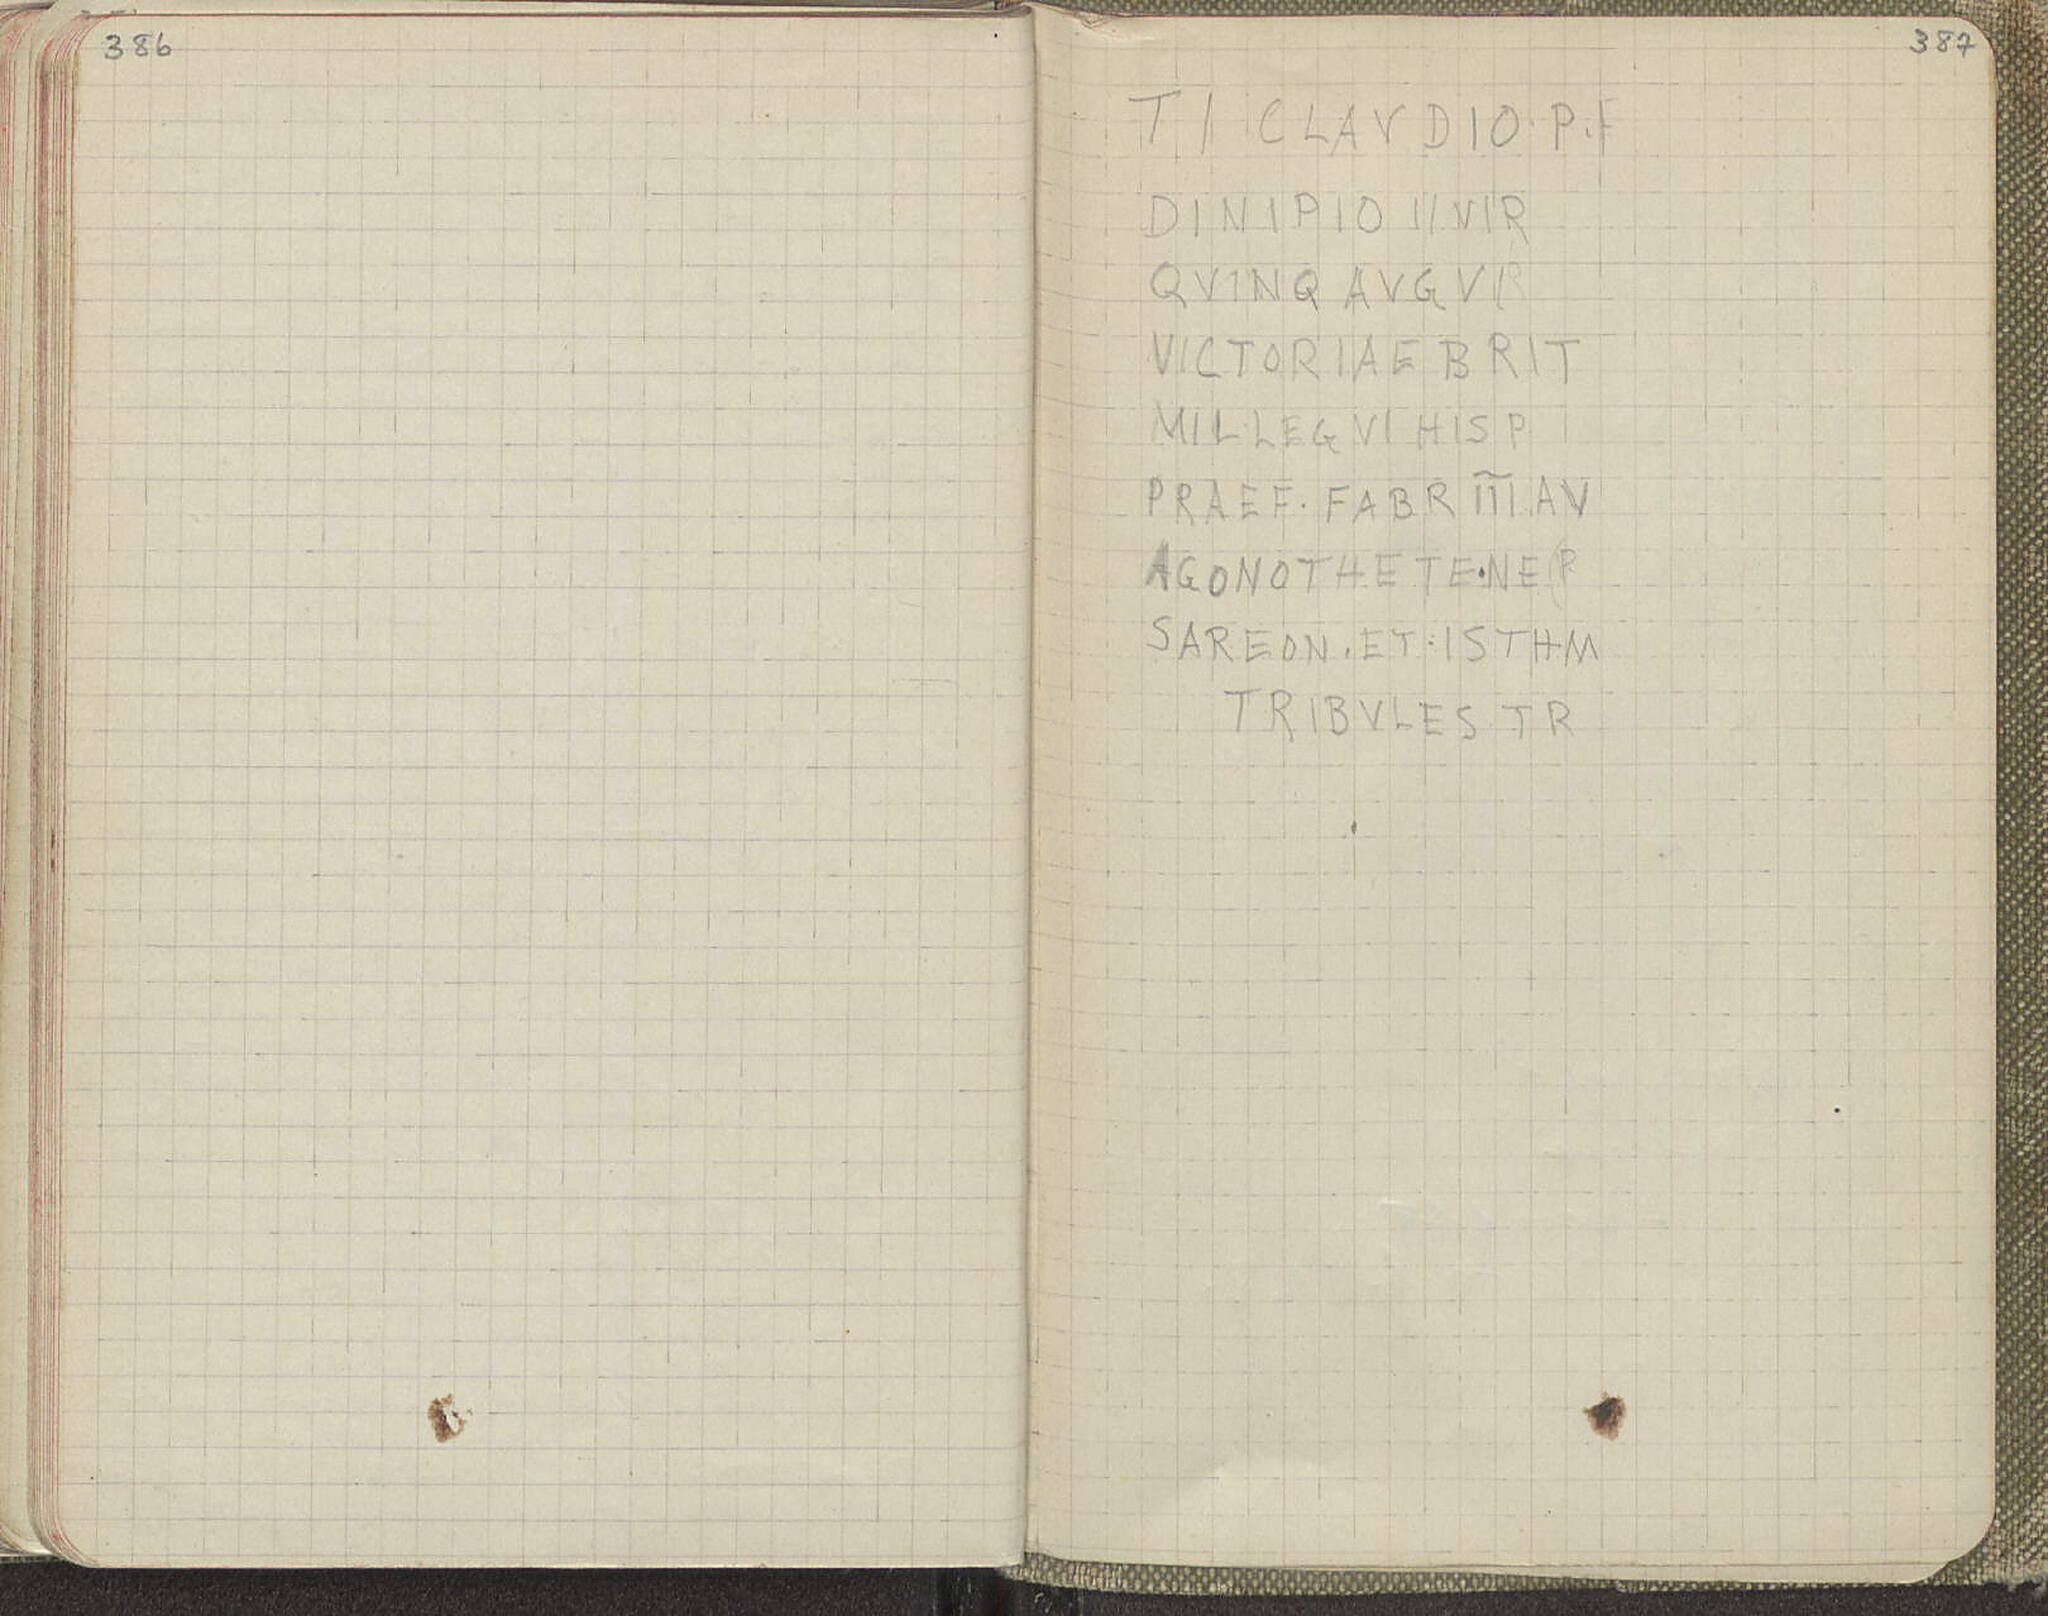 386
387
TI CLAVDIO·P·F
DINIPIO IIVIR
QVINQ AVGVR
VICTORIAE BRIT
MIL·LEG VI HISP
PRAEF·FABR III AV
AGONOTHETE·NE(R
SAREON·ET:ISTHM
TRIBVLES TR